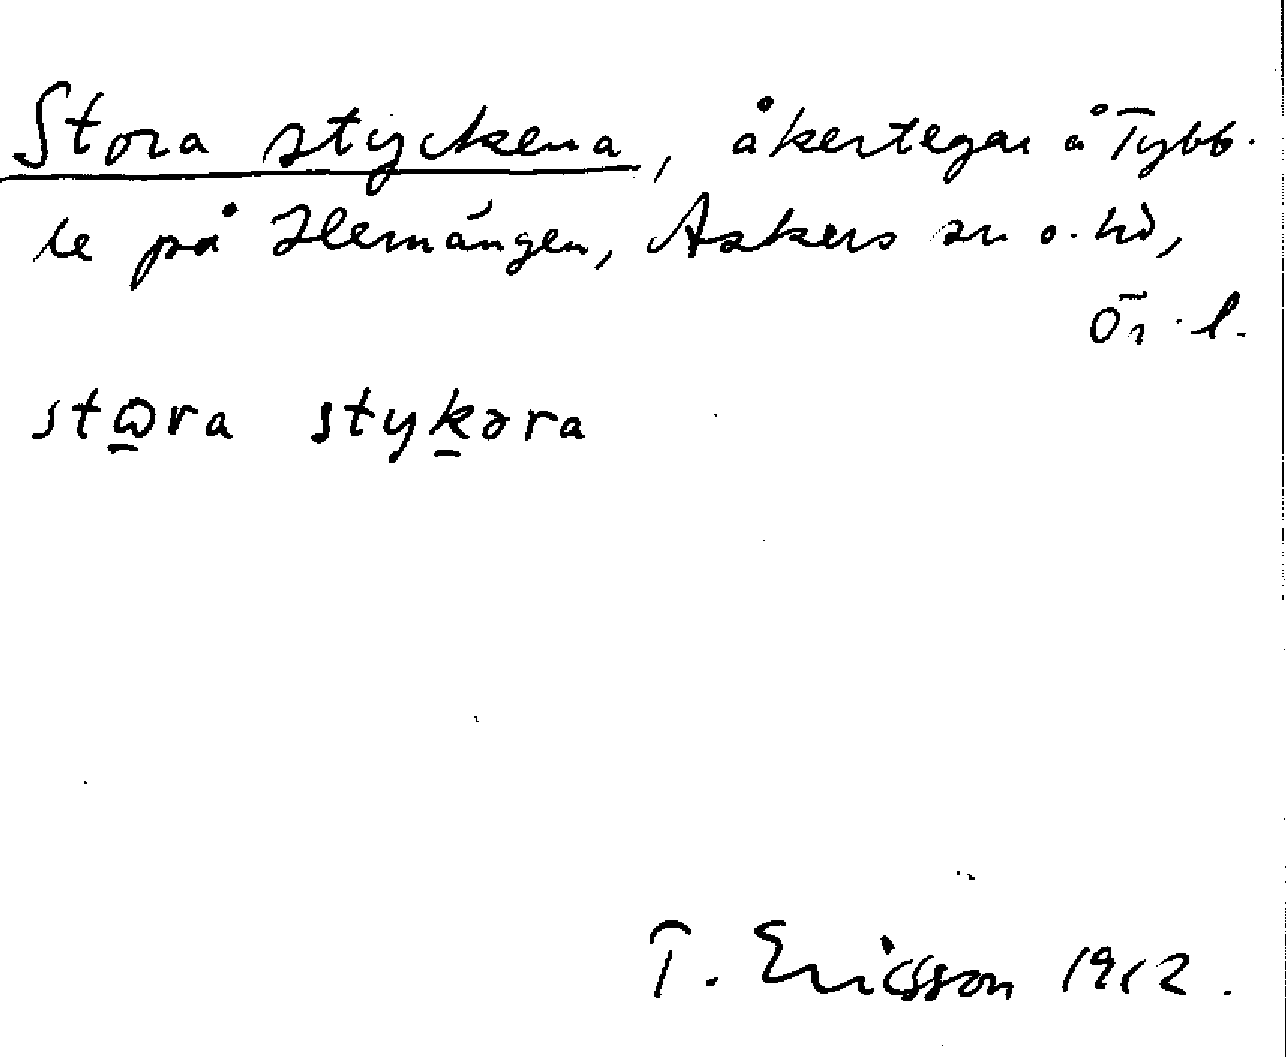 Stora styckena, åkertegar å Tybb-
le på Hemängen, Askers sn o. hd,
Ör. l.
stωra stykəra
T. Ericsson 1912.